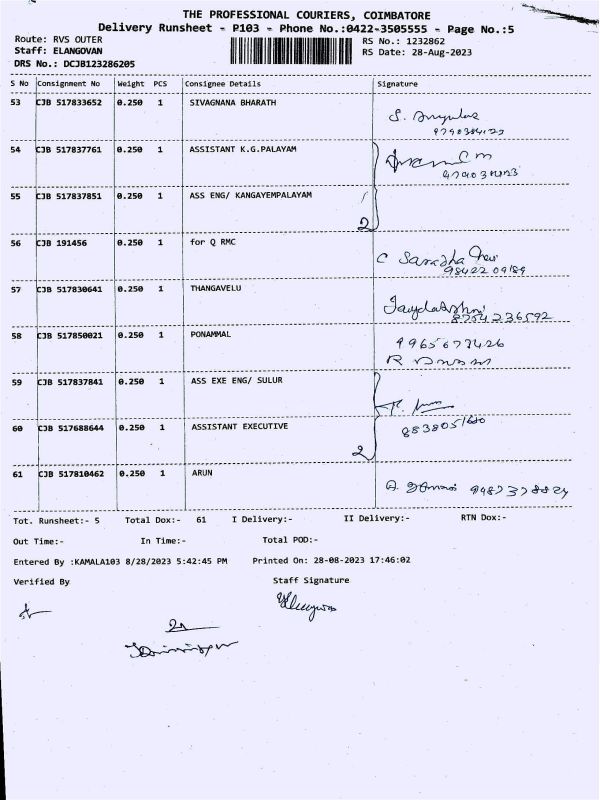 THE PROFESSIONAL COURIERS, COIMBATORE
Delivery Runsheet - P103 - Phone No.:0422-3505555 - Page No.:5
Route: RVS OUTER
RS No.: 1232862
Staff: ELANGOVAN
RS Date: 28-Aug-2023
DRS No.: DCJB123286205
S No Consignment No Weight PCS Consignee Details Signature
53 CJB 517833652 0.250 1 SIVAGNANA BHARATH
54 CJB 517837761 0.250 1 ASSISTANT K.G.PALAYAM
55 CJB 517837851 0.250 1 ASS ENG/ KANGAYEMPALAYAM
2
56 CJB 191456 0.250 1 for Q RMC
C Saradha Devi
98422 09189
57 CJB 517830641 0.250 1 THANGAVELU
8754236592
58 CJB 517850021 0.250 1 PONAMMAL
9965673426
59 CJB 517837841 0.250 1 ASS EXE ENG/ SULUR
60 CJB 517688644 0.250 1 ASSISTANT EXECUTIVE
2
61 CJB 517810462 0.250 1 ARUN
9487378824
Tot. Runsheet:- 5 Total Dox:- 61 I Delivery:- II Delivery:- RTN Dox:-
Out Time:- In Time:- Total POD:-
Entered By :KAMALA103 8/28/2023 5:42:45 PM Printed On: 28-08-2023 17:46:02
Verified By Staff Signature